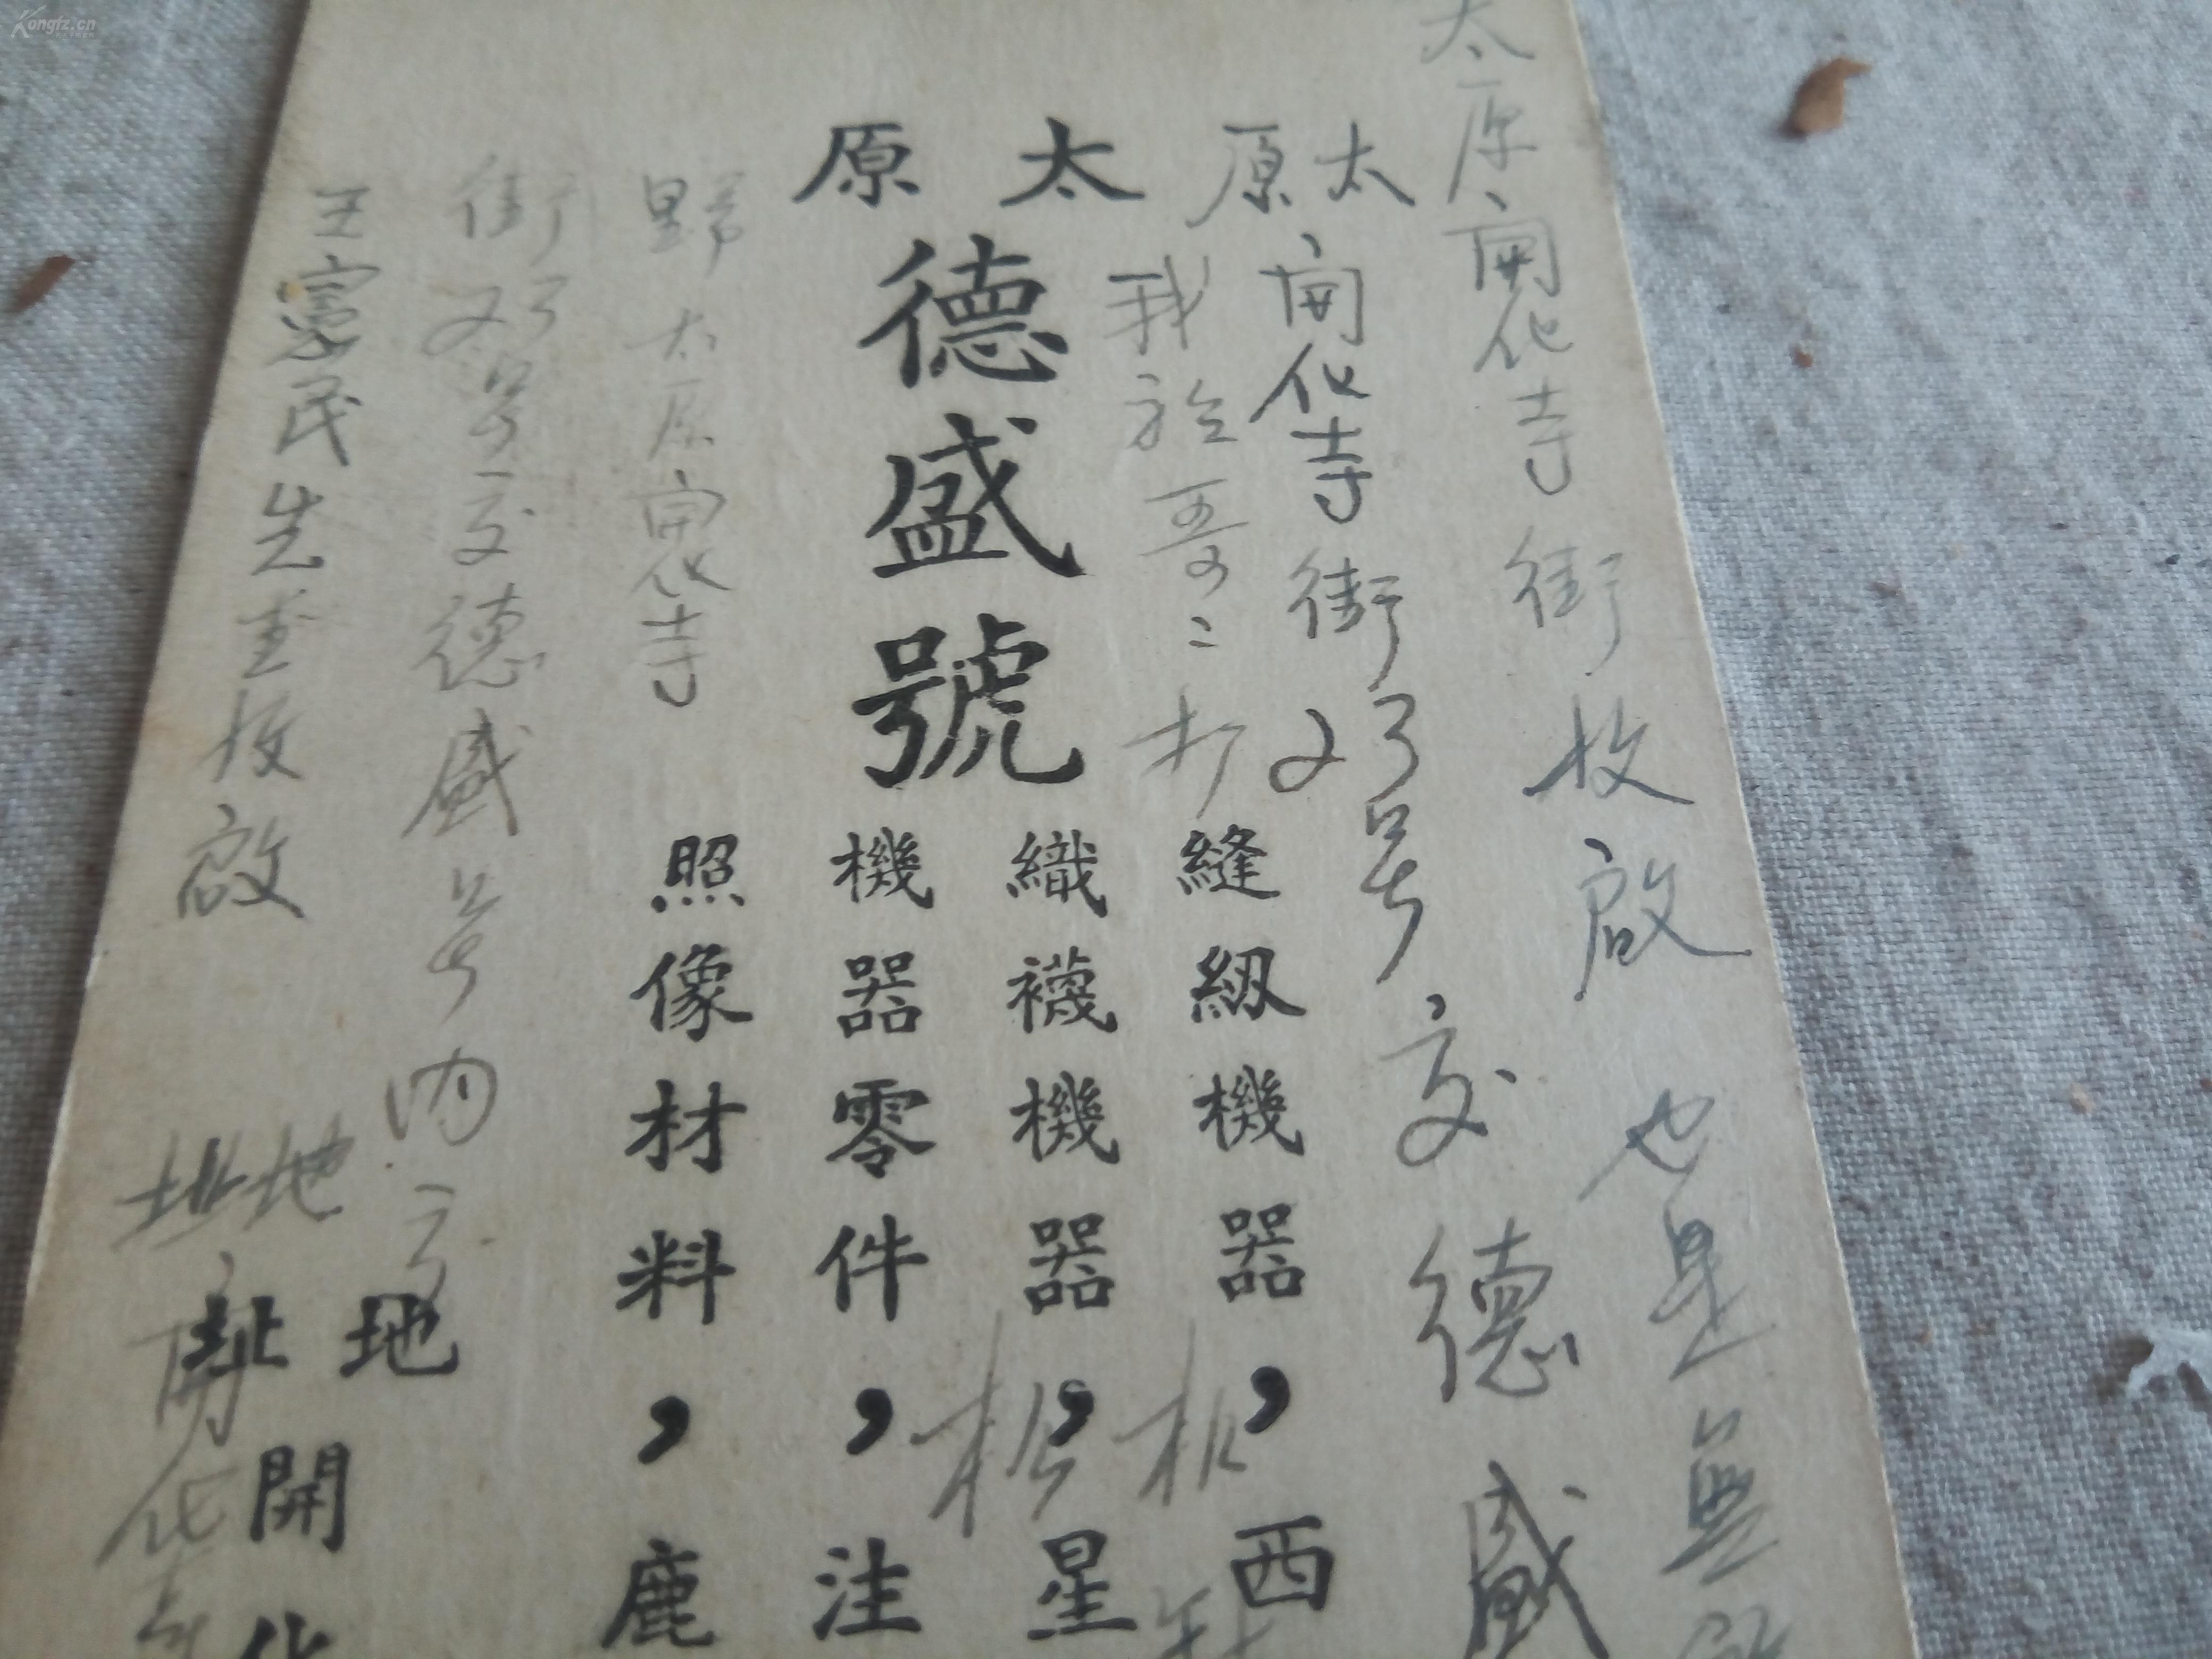 Kongfz.cn
太原開化寺街收啟
也是無
太原
開化寺街23号交德盛
我於哥二打
太原
德盛號
縫紉機器，西
織襪機器，星
機器零件，洼
照像材料，鹿
太原開化寺
街23号交德盛号内
地址
開化
王憲民先生收啟
地址
開化寺